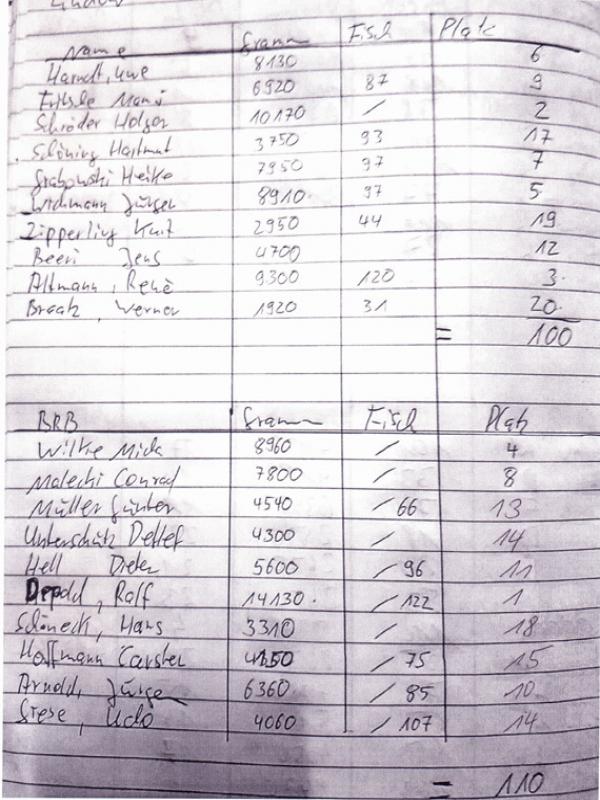 Name Gramm Fisch Platz
Harndt, Uwe 8130 6
Fritsche Mani 6920 87 9
Schröder Holger 10170 / 2
Schöning Hartmut 3750 93 17
Grabowski Heiko 7950 97 7
Wichmann Jürgen 8910 97 5
Zipperling Kurt 2950 44 19
Beeri Jens 4700 12
Altmann, Renè 9300 120 3
Braatz, Werner 1920 31 20
= 100
BRB Gramm Fisch Platz
Wilke Mick 8960 / 4
Malechi Conrad 7800 / 8
Müller Günter 4540 / 66 13
Unterschütz Detlef 4300 / 14
Hell Dieter 5600 / 96 11
Depold, Ralf 14130 / 122 1
Schöneck, Hans 3310 / 18
Hoffmann Carsten / 75 15
Arnold, Jürgen 6360 / 85 10
Stese, Udo 4060 / 107 14
= 110